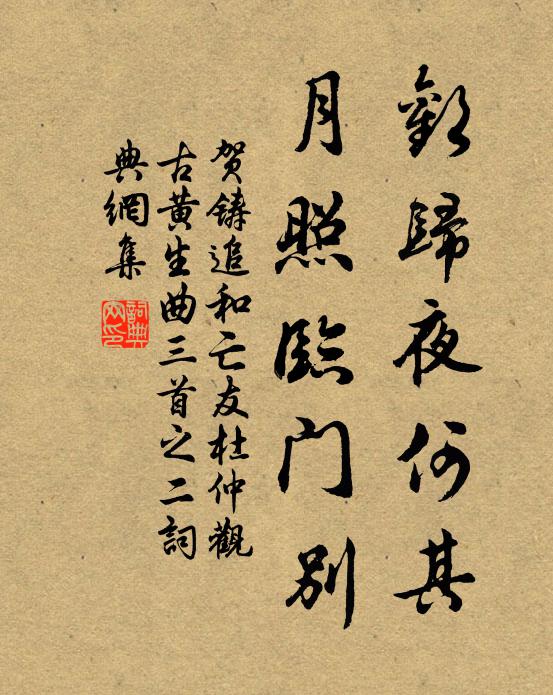 歡歸夜何其
月照臨门別
賀鑄追和亡友杜仲觀
古黃生曲三首之二詞
典網集
詞典
网印